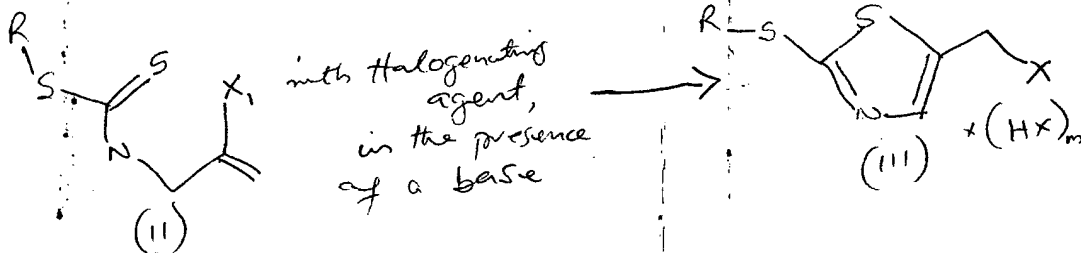 R
S
S
N
X₁
(II)
with Halogenating
agent,
in the presence
of a base
R-S
S
N
X
x (HX)m
(III)